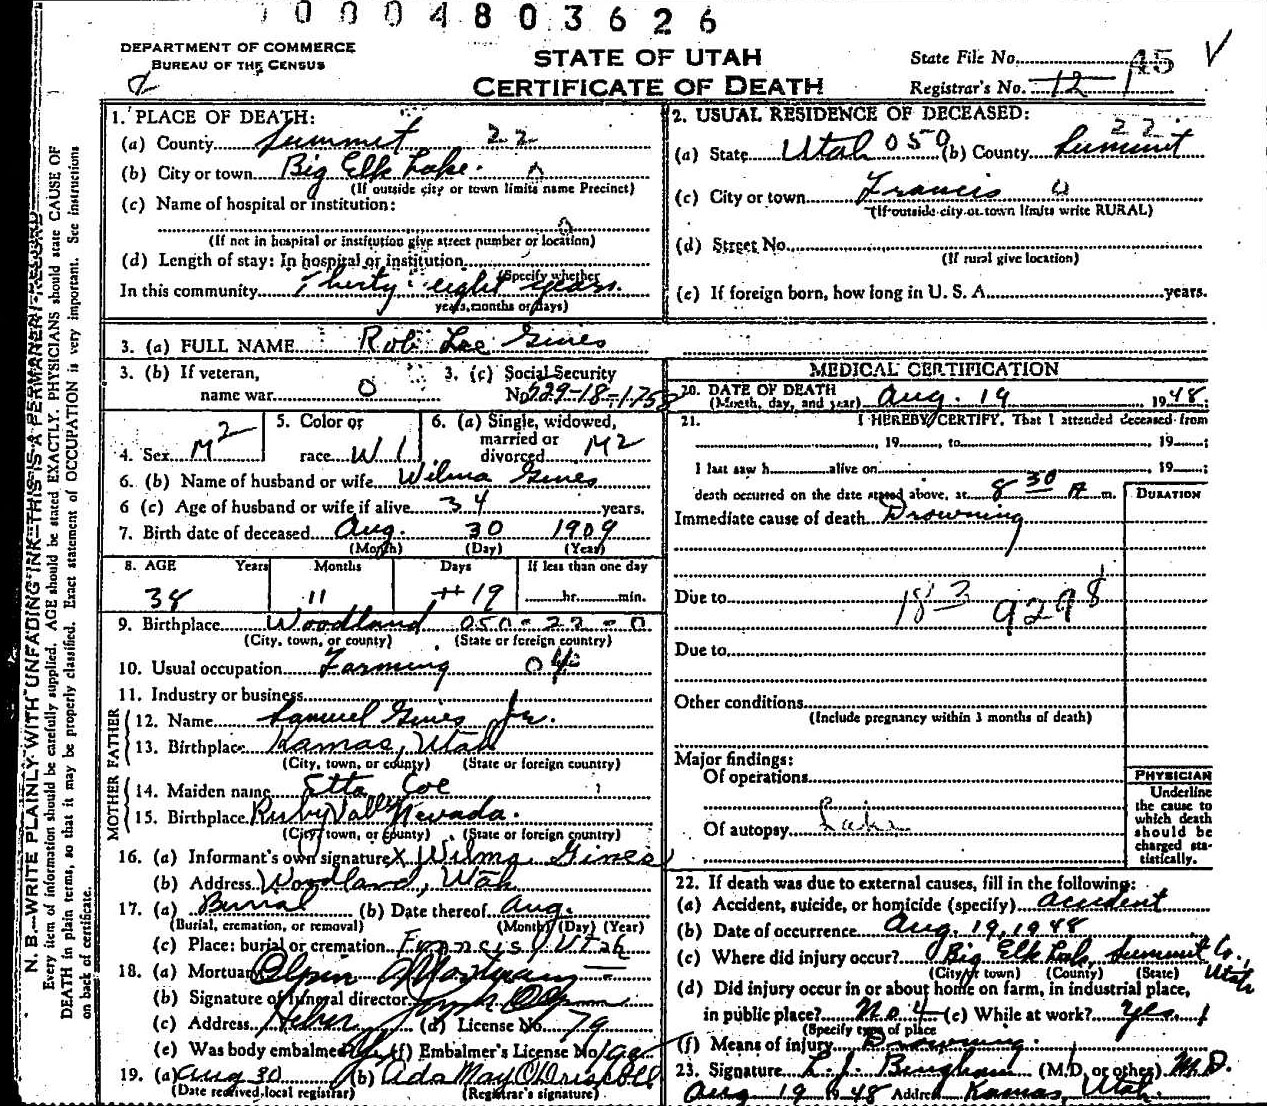 0 0 0 4 8 0 3 6 2 6
DEPARTMENT OF COMMERCE
BUREAU OF THE CENSUS
STATE OF UTAH
CERTIFICATE OF DEATH
State File No. 45
Registrar's No. 12
N. B.—WRITE PLAINLY WITH UNFADING INK—THIS IS A PERMANENT RECORD
Every item of information should be carefully supplied. AGE should be stated EXACTLY. PHYSICIANS should state CAUSE OF
DEATH in plain terms, so that it may be properly classified. Exact statement of OCCUPATION is very important. See instructions
on back of certificate.
1. PLACE OF DEATH:
(a) County Summit 22
(b) City or town Big Elk Lake. 0
(If outside city or town limits name Precinct)
(c) Name of hospital or institution:
0
(If not in hospital or institution give street number or location)
(d) Length of stay: In hospital or institution
(Specify whether
In this community Thirty eight years.
years, months or days)
2. USUAL RESIDENCE OF DECEASED:
(a) State Utah 050 (b) County Summit 22
(c) City or town Francis 0
(If outside city or town limits write RURAL)
(d) Street No.
(If rural give location)
(e) If foreign born, how long in U. S. A. years.
3. (a) FULL NAME Rob Lee Gines
3. (b) If veteran,
name war 0
3. (c) Social Security
No. 529-18-1758
4. Sex M 2
5. Color or
race W 1
6. (a) Single, widowed,
married or
divorced M 2
6. (b) Name of husband or wife Wilma Gines
6 (c) Age of husband or wife if alive 34 years.
7. Birth date of deceased Aug. 30 1909
(Month) (Day) (Year)
8. AGE Years Months Days If less than one day
38 11 19 hr. min.
9. Birthplace Woodland 050-22-0
(City, town, or county) (State or foreign country)
10. Usual occupation Farming
11. Industry or business
FATHER
12. Name Samuel Gines Jr.
13. Birthplace Kamas, Utah
(City, town, or county) (State or foreign country)
MOTHER
14. Maiden name Etta Coe
15. Birthplace Ruby Valley Nevada.
(City, town, or county) (State or foreign country)
16. (a) Informant's own signature X Wilma Gines
(b) Address Woodland, Utah
17. (a) Burial (b) Date thereof Aug.
(Burial, cremation, or removal) (Month) (Day) (Year)
(c) Place: burial or cremation Francis, Utah
18. (a) Mortuary Olpin
(b) Signature of funeral director
(c) Address Heber (d) License No. 79
(e) Was body embalmed (f) Embalmer's License No.
19. (a) Aug 30 (b) Ada May O'Driscoll
(Date received local registrar) (Registrar's signature)
MEDICAL CERTIFICATION
20. DATE OF DEATH
(Month, day, and year) Aug. 19 1948;
21. I HEREBY CERTIFY, That I attended deceased from
, 19 , to , 19 ;
I last saw h alive on , 19 ;
death occurred on the date stated above, at 8 30 A m.
DURATION
Immediate cause of death Drowning
Due to 183 9298
Due to
Other conditions
(Include pregnancy within 3 months of death)
Major findings:
Of operations
Of autopsy
PHYSICIAN
Underline
the cause to
which death
should be
charged sta-
tistically.
22. If death was due to external causes, fill in the following:
(a) Accident, suicide, or homicide (specify) accident
(b) Date of occurrence Aug. 19, 1948
(c) Where did injury occur? Big Elk Lake, Summit Co., Utah
(City or town) (County) (State)
(d) Did injury occur in or about home on farm, in industrial place,
in public place? No 4 (e) While at work? yes 1
(Specify type of place
(f) Means of injury Drowning.
23. Signature L. J. Bingham (M.D. or other) M.D.
Aug 19 1948 Address Kamas, Utah